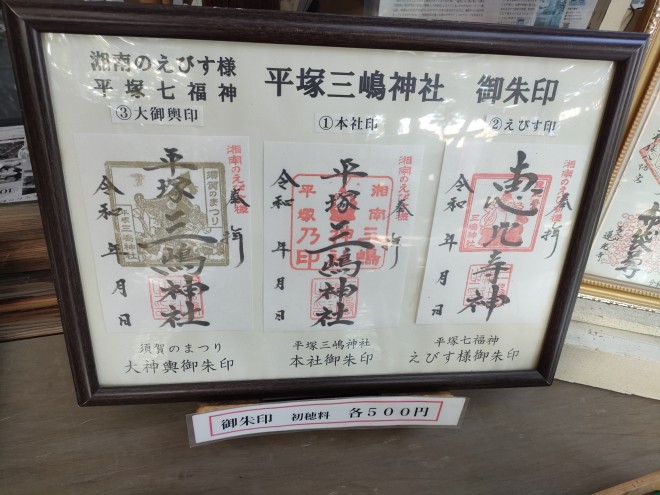 湘南のえびす様
平塚七福神
③大御輿印
平塚三嶋神社 御朱印
①本社印
②えびす印
湘南のえびす様
奉拝
平塚三嶋神社
令和 年 月 日
須賀のまつり
湘南のえびす様
奉拝
平塚三嶋神社
令和 年 月 日
湘南三嶋
平塚乃印
湘南のえびす様
奉拝
恵比寿神
令和 年 月 日
須賀のまつり
大神輿御朱印
平塚三嶋神社
本社御朱印
平塚七福神
えびす様御朱印
御朱印 初穂料 各500円